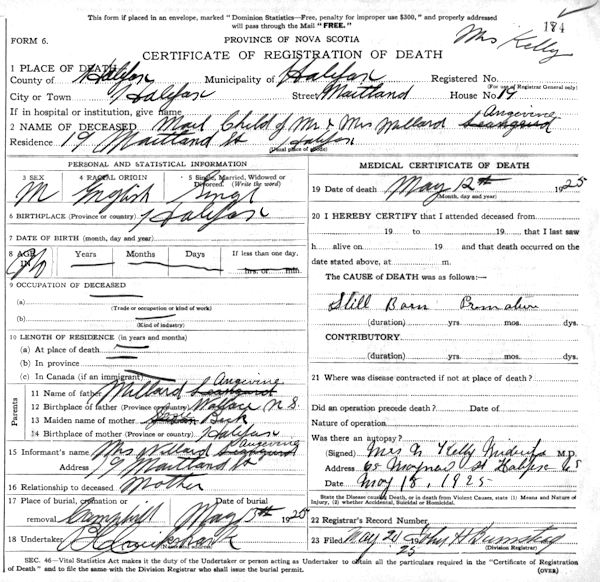 This form if placed in an envelope, marked "Dominion Statistics—Free, penalty for improper use $300," and properly addressed
will pass through the Mail "FREE."
174
FORM 6.
PROVINCE OF NOVA SCOTIA
Mrs Kelly
CERTIFICATE OF REGISTRATION OF DEATH
1 PLACE OF DEATH
County of Halifax Municipality of Halifax Registered No.
(For use of Registrar General only)
City or Town Halifax Street Maitland House No. 19
If in hospital or institution, give name
Angevine
2 NAME OF DECEASED Male Child of Mr & Mrs Millard
Residence 19 Maitland St Halifax
(Usual place of abode)
PERSONAL AND STATISTICAL INFORMATION
3 SEX 4 RACIAL ORIGIN 5 Single, Married, Widowed or Divorced. (Write the word)
M English Single
6 BIRTHPLACE (Province or country) Halifax
7 DATE OF BIRTH (month, day and year)
8 AGE IN Years Months Days If less than one day.
hrs. or min.
9 OCCUPATION OF DECEASED
(a)
(Trade or occupation or kind of work)
(b)
(Kind of industry)
10 LENGTH OF RESIDENCE (in years and months)
(a) At place of death
(b) In province
(c) In Canada (if an immigrant)
Angevine
Parents
11 Name of father Millard
12 Birthplace of father (Province or country) Wallace N S.
13 Maiden name of mother
14 Birthplace of mother (Province or country) Halifax
Angevine
15 Informant's name Mrs Millard
Address 19 Maitland St
16 Relationship to deceased Mother
17 Place of burial, cremation or removal Date of burial
Camphill May 1925
18 Undertaker
(Name and address)
MEDICAL CERTIFICATE OF DEATH
19 Date of death May 12th 1925
(Month, day and year)
20 I HEREBY CERTIFY that I attended deceased from
19 to 19 , that I last saw
h alive on 19 and that death occurred on the
date stated above, at m.
The CAUSE of DEATH was as follows:—
Still Born
(duration) yrs. mos. dys.
CONTRIBUTORY
(duration) yrs. mos. dys.
21 Where was disease contracted if not at place of death?
Did an operation precede death? Date of
Nature of operation
Was there an autopsy?
(Signed) Mrs Kelly Midwife M.D.
Address 68 St Halifax
Date May 15, 1925
State the Disease causing Death, or in death from Violent Causes, state (1) Means and Nature of Injury, (2) Whether Accidental, Suicidal or Homicidal.
22 Registrar's Record Number
23 Filed May 20 John H
25
(Division Registrar)
SEC. 46—Vital Statistics Act makes it the duty of the Undertaker or person acting as Undertaker to obtain all the particulars required in the "Certificate of Registration
of Death" and to file the same with the Division Registrar who shall issue the burial permit.
(OVER)